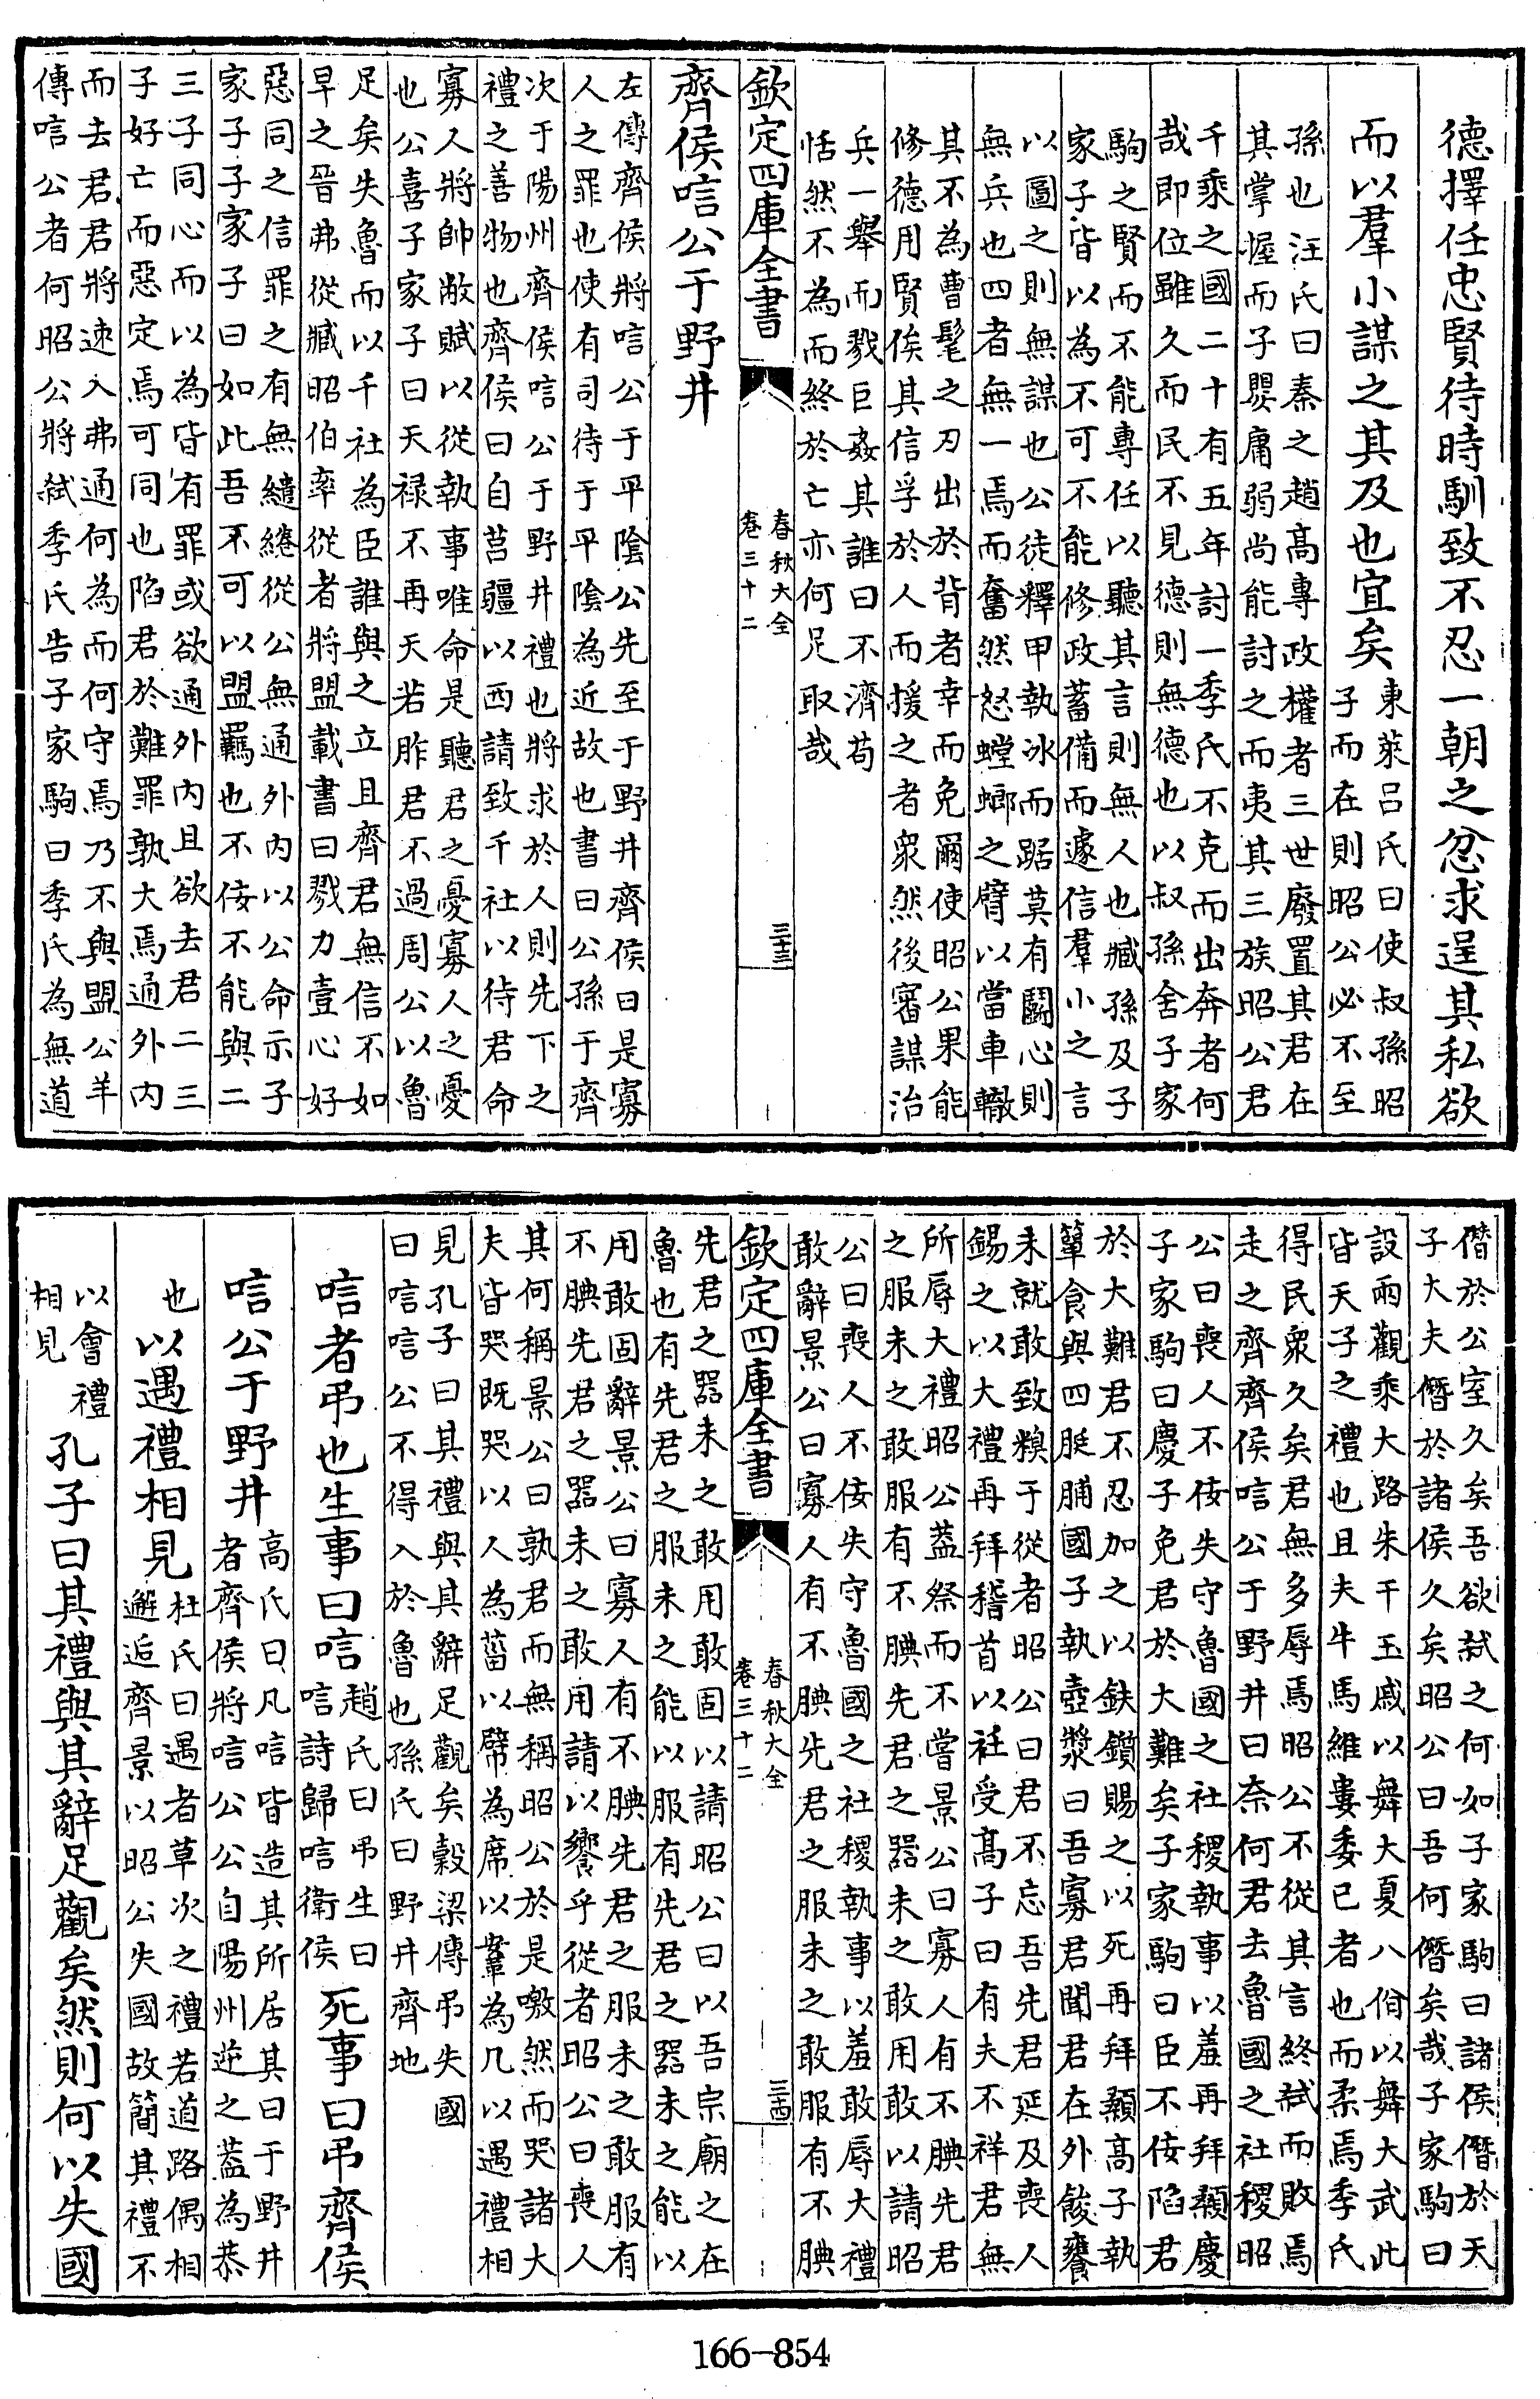 德擇任忠賢待時馴致不忍一朝之忿求逞其私欲
而以羣小謀之其及也宜矣
東萊吕氏曰使叔孫昭
子而在則昭公必不至
孫也汪氏曰秦之趙髙專政權者三世廢置其君在
其掌握而子嬰庸弱尚能討之而夷其三族昭公君
千乘之國二十有五年討一季氏不克而出奔者何
哉即位雖久而民不見德則無德也以叔孫舍子家
駒之賢而不能專任以聽其言則無人也臧孫及子
家子皆以為不可不能修政蓄備而遽信羣小之言
以圖之則無謀也公徒釋甲執冰而踞莫有鬭心則
無兵也四者無一焉而奮然怒螳螂之臂以當車轍
其不為曹髦之刃出於背者幸而免爾使昭公果能
修德用賢俟其信孚於人而援之者衆然後審謀治
兵一舉而戮巨姦其誰曰不濟茍
恬然不為而終於亡亦何足取哉
欽定四庫全書
春秋大全
卷三十二
三十三
齊侯唁公于野井
左傳齊侯將唁公于平陰公先至于野井齊侯曰是寡
人之罪也使有司待于平陰為近故也書曰公孫于齊
次于陽州齊侯唁公于野井禮也將求於人則先下之
禮之善物也齊侯曰自莒疆以西請致千社以待君命
寡人將帥敝賦以從執事唯命是聽君之憂寡人之憂
也公喜子家子曰天禄不再天若胙君不過周公以魯
足矣失魯而以千社為臣誰與之立且齊君無信不如
早之晉弗從臧昭伯率從者將盟載書曰戮力壹心好
惡同之信罪之有無繾綣從公無通外内以公命示子
家子子家子曰如此吾不可以盟羈也不佞不能與二
三子同心而以為皆有罪或欲通外内且欲去君二三
子好亡而惡定焉可同也陷君於難罪孰大焉通外内
而去君君將速入弗通何為而何守焉乃不與盟公羊
傳唁公者何昭公將弑季氏告子家駒曰季氏為無道
僭於公室久矣吾欲弑之何如子家駒曰諸侯僭於天
子大夫僭於諸侯久矣昭公曰吾何僭矣哉子家駒曰
設兩觀乘大路朱干玉戚以舞大夏八佾以舞大武此
皆天子之禮也且夫牛馬維婁委己者也而柔焉季氏
得民衆久矣君無多辱焉昭公不從其言終弑而敗焉
走之齊齊侯唁公于野井曰奈何君去魯國之社稷昭
公曰喪人不佞失守魯國之社稷執事以羞再拜顙慶
子家駒曰慶子免君於大難矣子家駒曰臣不佞陷君
於大難君不忍加之以鈇鑕賜之以死再拜顙高子執
簞食與四脡脯國子執壺漿曰吾寡君聞君在外餕饔
未就敢致糗于從者昭公曰君不忘吾先君延及喪人
錫之以大禮再拜稽首以衽受高子曰有夫不祥君無
所辱大禮昭公葢祭而不嘗景公曰寡人有不腆先君
之服未之敢服有不腆先君之器未之敢用敢以請昭
公曰喪人不佞失守魯國之社稷執事以羞敢辱大禮
敢辭景公曰寡人有不腆先君之服未之敢服有不腆
欽定四庫全書
春秋大全
卷三十二
三十四
先君之器未之敢用敢固以請昭公曰以吾宗廟之在
魯也有先君之服未之能以服有先君之器未之能以
用敢固辭景公曰寡人有不腆先君之服未之敢服有
不腆先君之器未之敢用請以饗乎從者昭公曰喪人
其何稱景公曰孰君而無稱昭公於是噭然而哭諸大
夫皆哭既哭以人為菑以幦為席以鞌為几以遇禮相
見孔子曰其禮與其辭足觀矣穀梁傳弔失國
曰唁唁公不得入於魯也孫氏曰野井齊地
唁者弔也生事曰唁
趙氏曰弔生曰
唁詩歸唁衛侯
死事曰弔齊侯
唁公于野井
高氏曰凡唁皆造其所居其曰于野井
者齊侯將唁公公自陽州逆之葢為恭
也
以遇禮相見
杜氏曰遇者草次之禮若道路偶相
邂逅齊景以昭公失國故簡其禮不
以會禮
相見
孔子曰其禮與其辭足觀矣然則何以失國
166-854